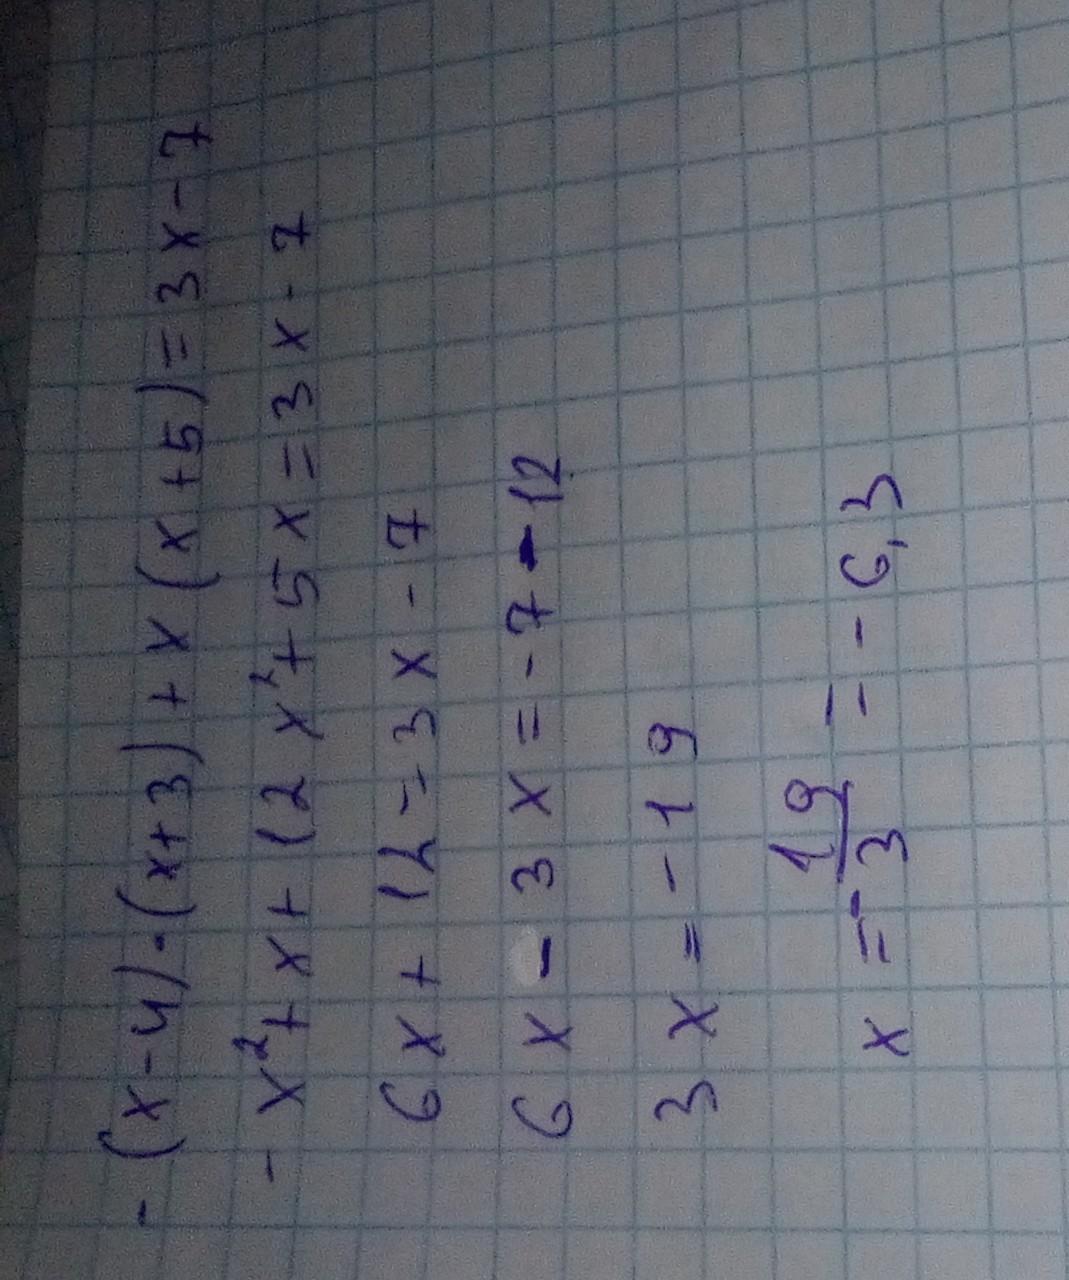 - (x-4)·(x+3)+x(x+5)=3x-7
- x²+x+12 x²+5x=3x-7
6x+12=3x-7
6x-3x=-7-12
3x=-19
x=-19/3=-6,3